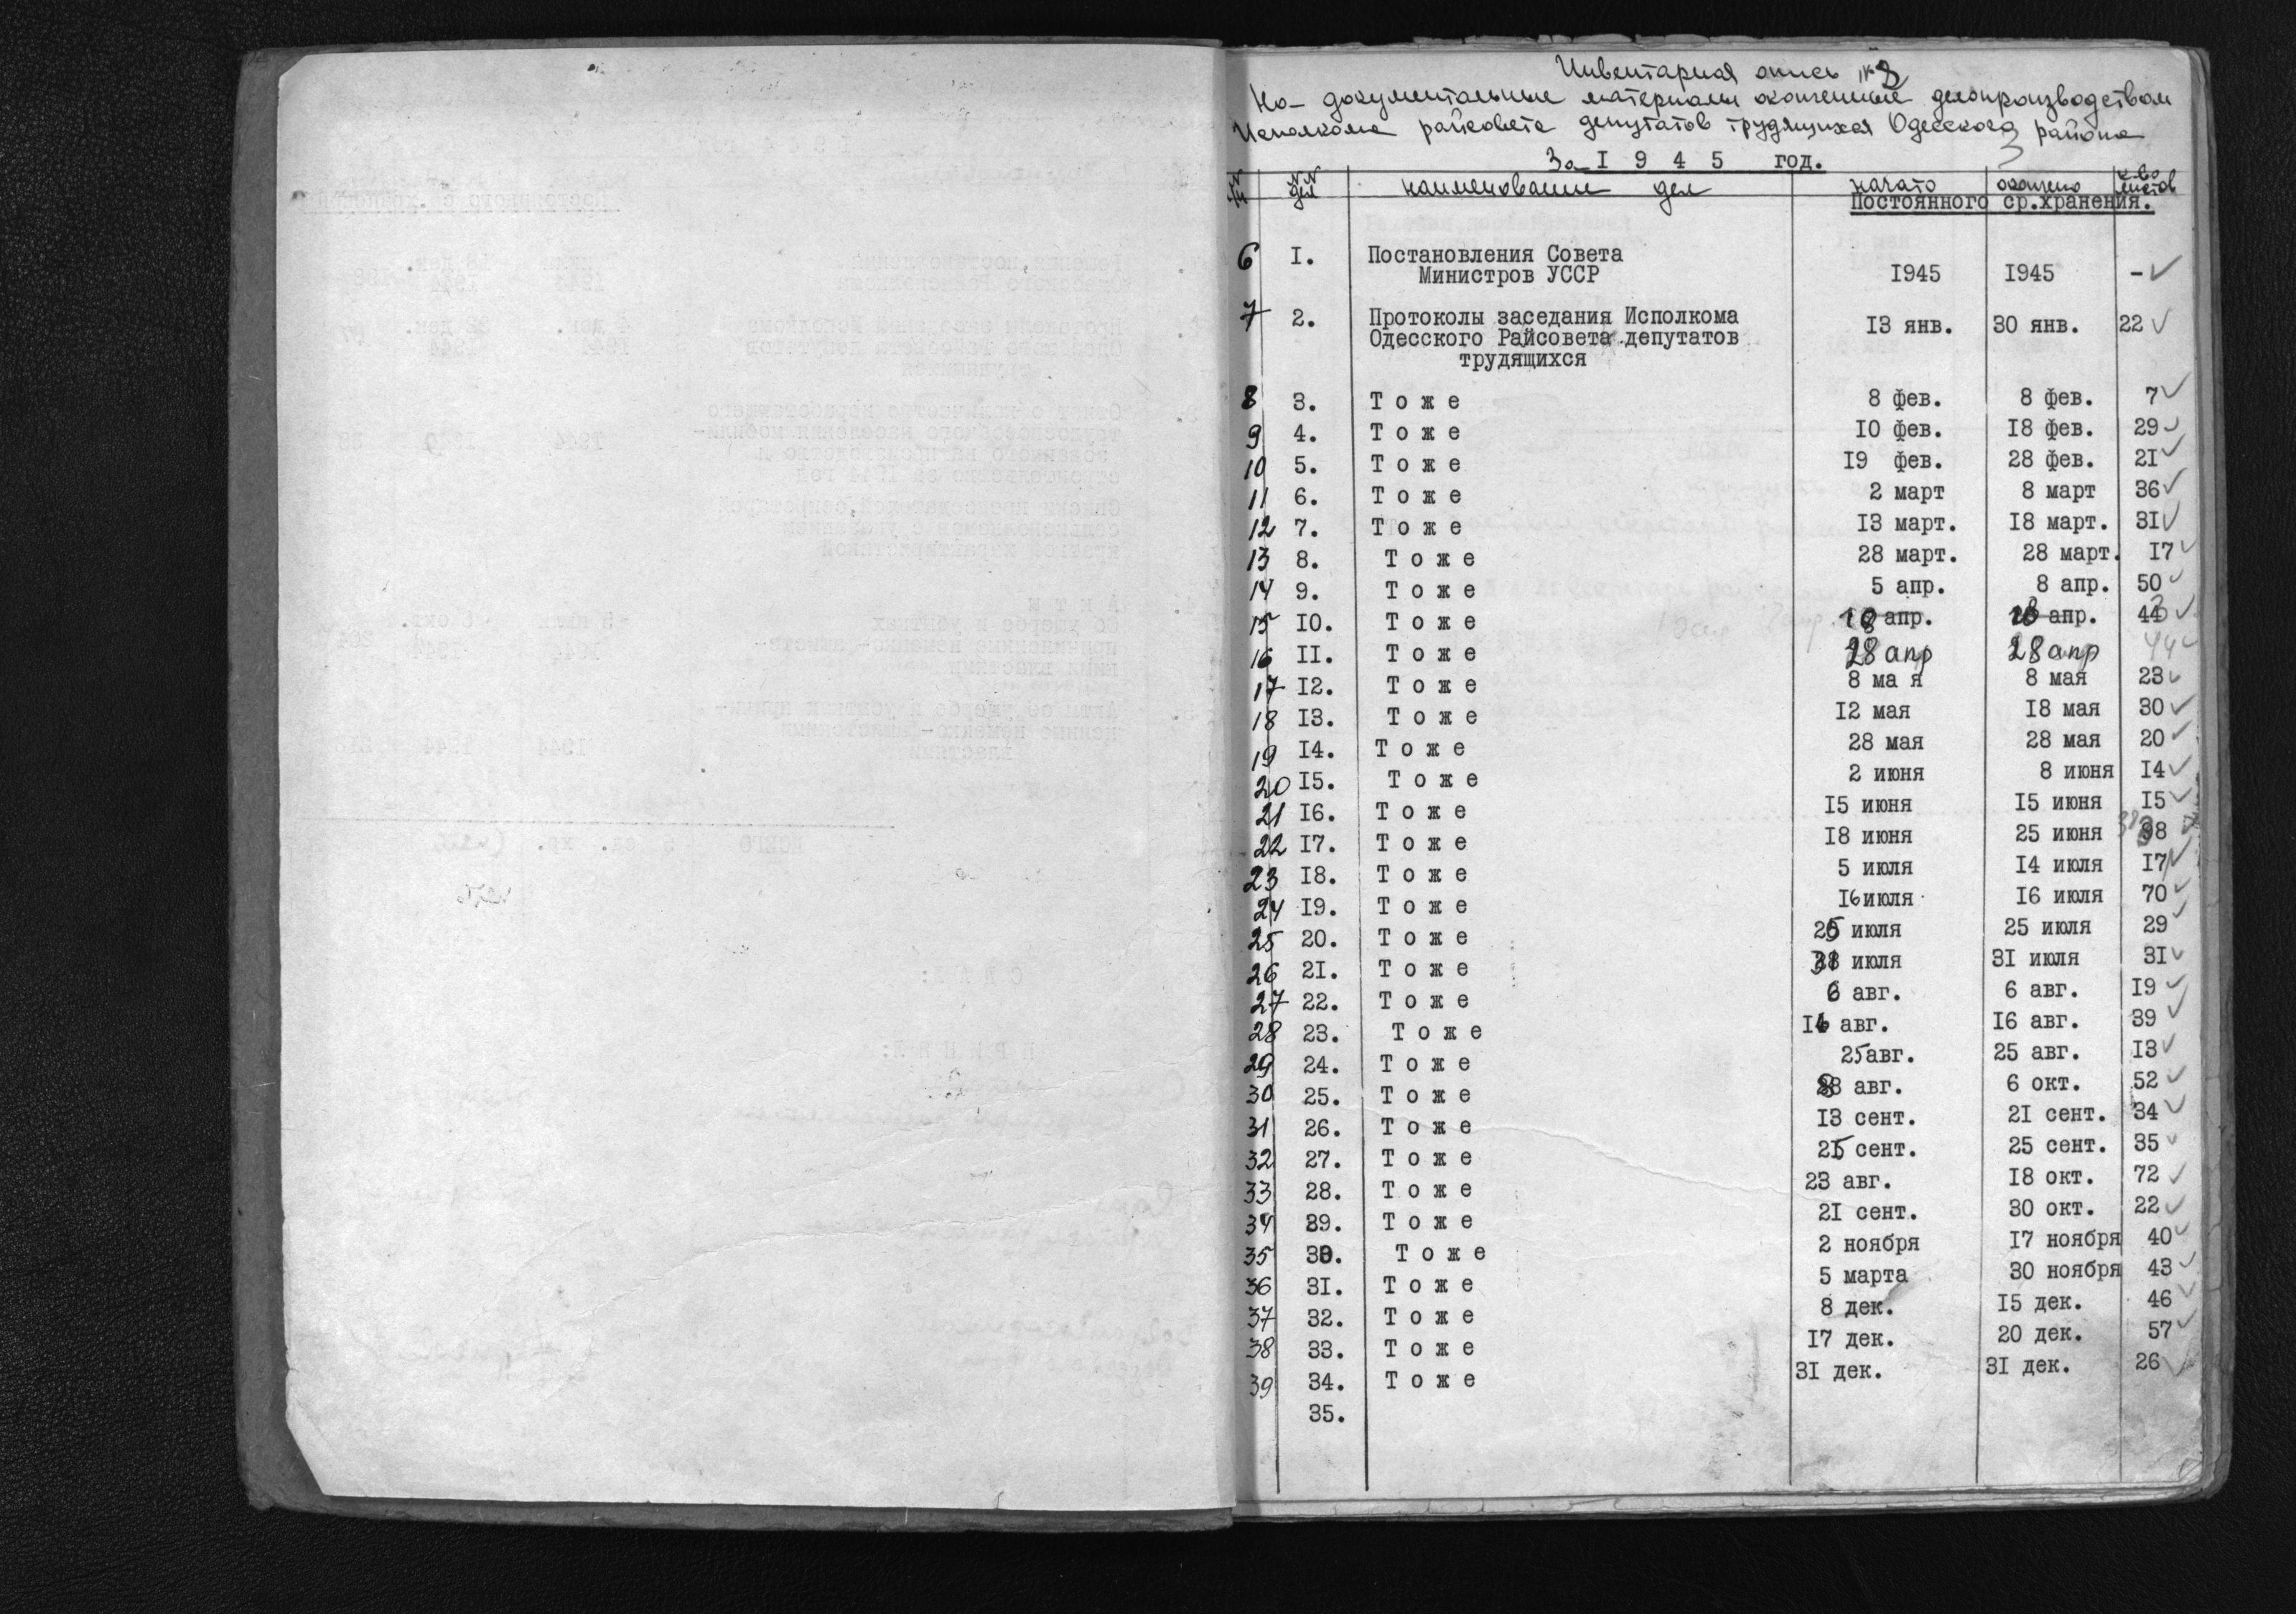 Инвентарная опись № 3
На документальные материалы оконченные делопроизводством
Исполкома райсовета депутатов трудящихся Одесского района
За I 9 4 5 год.
№ п/п №№ дел наименование дел начато окончено к-во листов
Постоянного ср.хранения.
6 I. Постановления Совета
Министров УССР I945 I945 - ✓
7 2. Протоколы заседания Исполкома I3 янв. 30 янв. 22 ✓
Одесского Райсовета депутатов
трудящихся
8 3. Т о ж е 8 фев. 8 фев. 7 ✓
9 4. Т о ж е I0 фев. I8 фев. 29 ✓
10 5. Т о ж е I9 фев. 28 фев. 2I ✓
11 6. Т о ж е 2 март 8 март 36 ✓
12 7. Т о ж е I3 март. I8 март. 3I ✓
13 8. Т о ж е 28 март. 28 март. I7 ✓
14 9. Т о ж е 5 апр. 8 апр. 50 ✓
15 I0. Т о ж е 18 апр. 18 апр. ✓
16 II. Т о ж е 28 апр 28 апр 44 ✓
17 I2. Т о ж е 8 ма я 8 мая 23 ✓
18 I3. Т о ж е I2 мая I8 мая 30 ✓
19 I4. Т о ж е 28 мая 28 мая 20 ✓
20 I5. Т о ж е 2 июня 8 июня I4 ✓
21 I6. Т о ж е I5 июня I5 июня I5 ✓
22 I7. Т о ж е I8 июня 25 июня 98 ✓
23 I8. Т о ж е 5 июля I4 июля I7 ✓
24 I9. Т о ж е I6 июля I6 июля 70 ✓
25 20. Т о ж е 25 июля 25 июля 29 ✓
26 2I. Т о ж е 31 июля 3I июля 3I ✓
27 22. Т о ж е 6 авг. 6 авг. I9 ✓
28 23. Т о ж е I6 авг. I6 авг. 39 ✓
29 24. Т о ж е 25 авг. 25 авг. I3 ✓
30 25. Т о ж е авг. 6 окт. 52 ✓
31 26. Т о ж е I3 сент. 2I сент. 34 ✓
32 27. Т о ж е 25 сент. 25 сент. 35 ✓
33 28. Т о ж е 23 авг. I8 окт. 72 ✓
34 29. Т о ж е 2I сент. 30 окт. 22 ✓
35 30. Т о ж е 2 ноября I7 ноября 40 ✓
36 3I. Т о ж е 5 марта 30 ноября 43 ✓
37 32. Т о ж е 8 дек. I5 дек. 46 ✓
38 33. Т о ж е I7 дек. 20 дек. 57 ✓
39 34. Т о ж е 3I дек. 3I дек. 26 ✓
35.